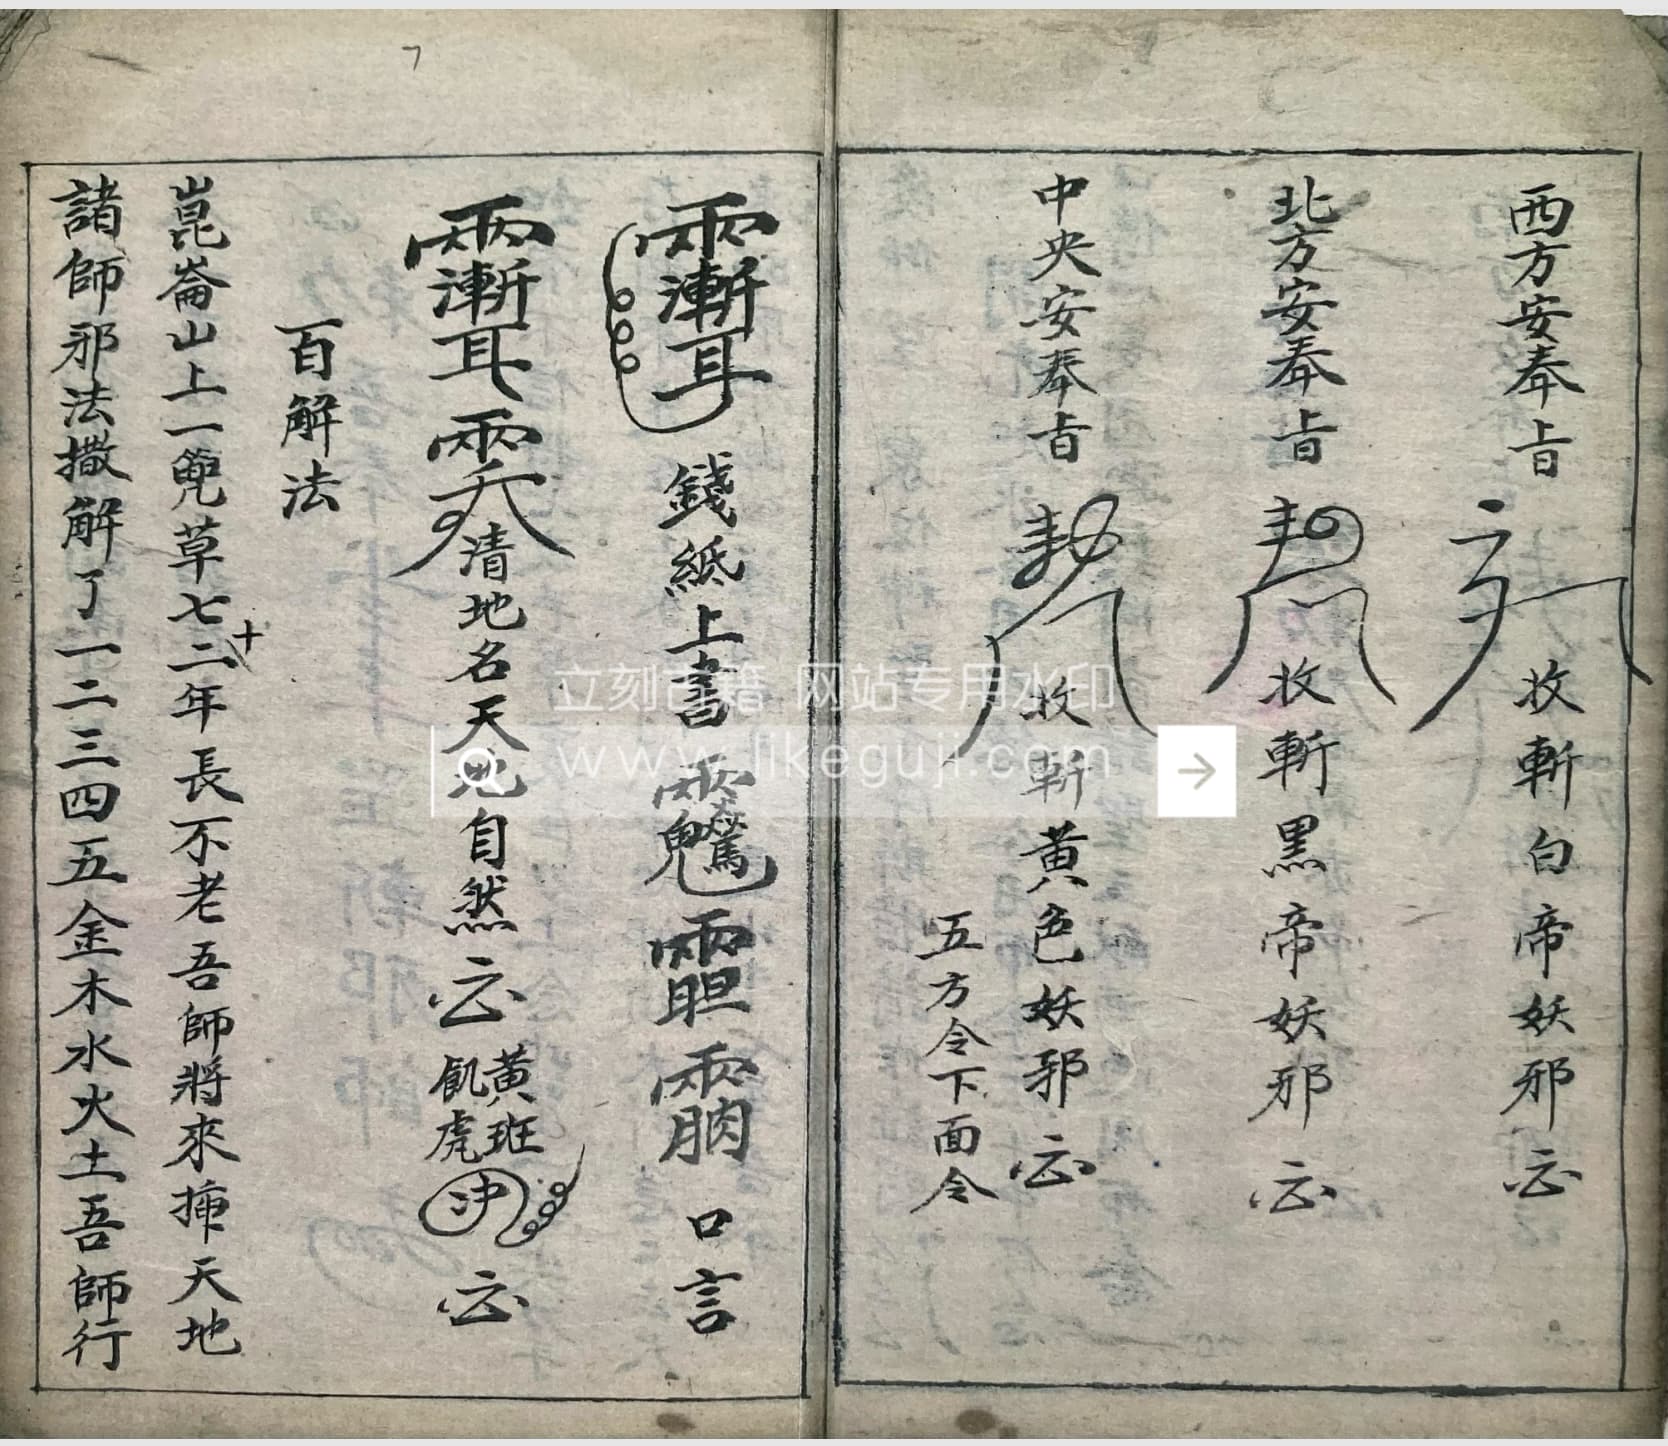 西方安奉旨 收斬白帝妖邪
北方安奉旨 收斬黑帝妖邪
中央安奉旨 收斬黃色妖邪
五方令下面令
錢紙上書 口言
清地名天地自然
黃班
飢虎
百解法
崑崙山上一篼草七十二年長不老吾師將來揷天地
諸師邪法撒解了一二三四五金木水火土吾師行
立刻古籍 网站专用水印
www.likeguji.com